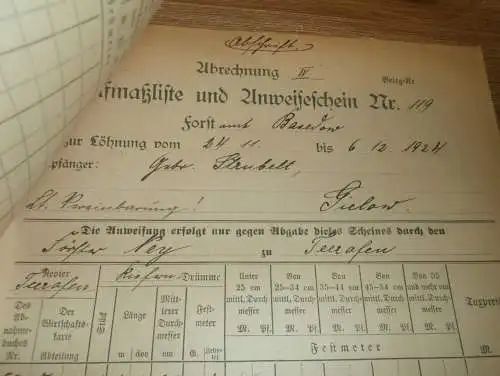 Abschrift.
Abrechnung IV
Beleg-Nr.
fmaßliste und Anweiseschein Nr. 119
Forstamt Basedow
zur Löhnung vom 24 11. bis 6 12. 1924
pfänger: Gebr. Strubelt,
Lt. Vereinbarung! Gielow.
Die Anweisung erfolgt nur gegen Abgabe dieses Scheines durch den
Förster Ney zu Teerofen
Revier Teerofen
Kiefern Drümme
Des Abnahmebuches Nr.
Der Wirtschaftskarte Abteilung
Stück
Länge
m dcm
Mittlerer Durchmesser
cm
Festmeter
G.
Unter 25 cm mittl. Durchmesser
Von 25—34 cm mittl. Durchmesser
Von 35—44 cm mittl. Durchmesser
Von 45—54 cm mittl. Durchmesser
Von 55 und mehr cm mittl. Durchmesser
M. Pf. M. Pf. M. Pf. M. Pf. M. Pf.
Festmeter
Taxpreis
M.